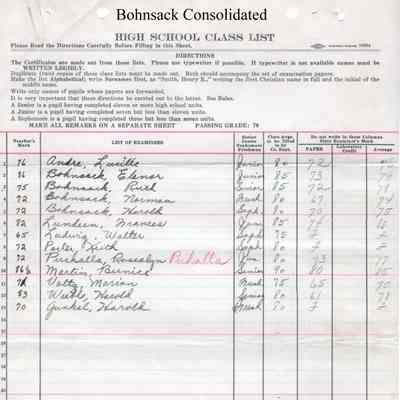 Bohnsack Consolidated
HIGH SCHOOL CLASS LIST
Please Read the Directions Carefully Before Filling in this Sheet.
DIRECTIONS
The Certificates are made out from these lists. Please use typewriter if possible. If typewriter is not available names must be
WRITTEN LEGIBLY.
Duplicate (two) copies of these class lists must be made out. Both should accompany the set of examination papers.
Make the list Alphabetical; write Surnames first, as "Smith, Henry E.," writing the first Christian name in full and the initial of the
middle name.
Write only names of pupils whose papers are forwarded.
It is very important that these directions be carried out to the letter. See Rules.
A Senior is a pupil having completed eleven or more high school units.
A Junior is a pupil having completed seven but less than eleven units.
A Sophomore is a pupil having completed three but less than seven units.
MAKE ALL REMARKS ON A SEPARATE SHEET PASSING GRADE: 70
Teacher's Mark LIST OF EXAMINEES Senior Junior Sophomore Freshman Do not write in these Columns
State Examiner's Mark
PAPER Laboratory Credit Average
1 76 Andre, Lucille Junior 80 72
2 86 Bohnsack, Elenor Junior 85 73 77
3 75 Bohnsack, Ruth Junior 85 72
4 72 Bohnsack, Norman Fresh 80 67 74
5 72 Bohnsack, Harold Soph. 80 70 75
6 82 Lundeen, Frances Jun 85
7 65 Ludwig, Walter Soph 75 F
8 72 Porter, Keith Soph 80 F F
9 72 Puchalla, Rosealyn Pichalla Jun. 80 73 77
10 86½ Martin, Bernice Senior 90 80 85
11 Marian Fresh 75 65 70
12 83 Harold Senior 80 61
13 70 Gunkel, Harold Fresh 80 F F